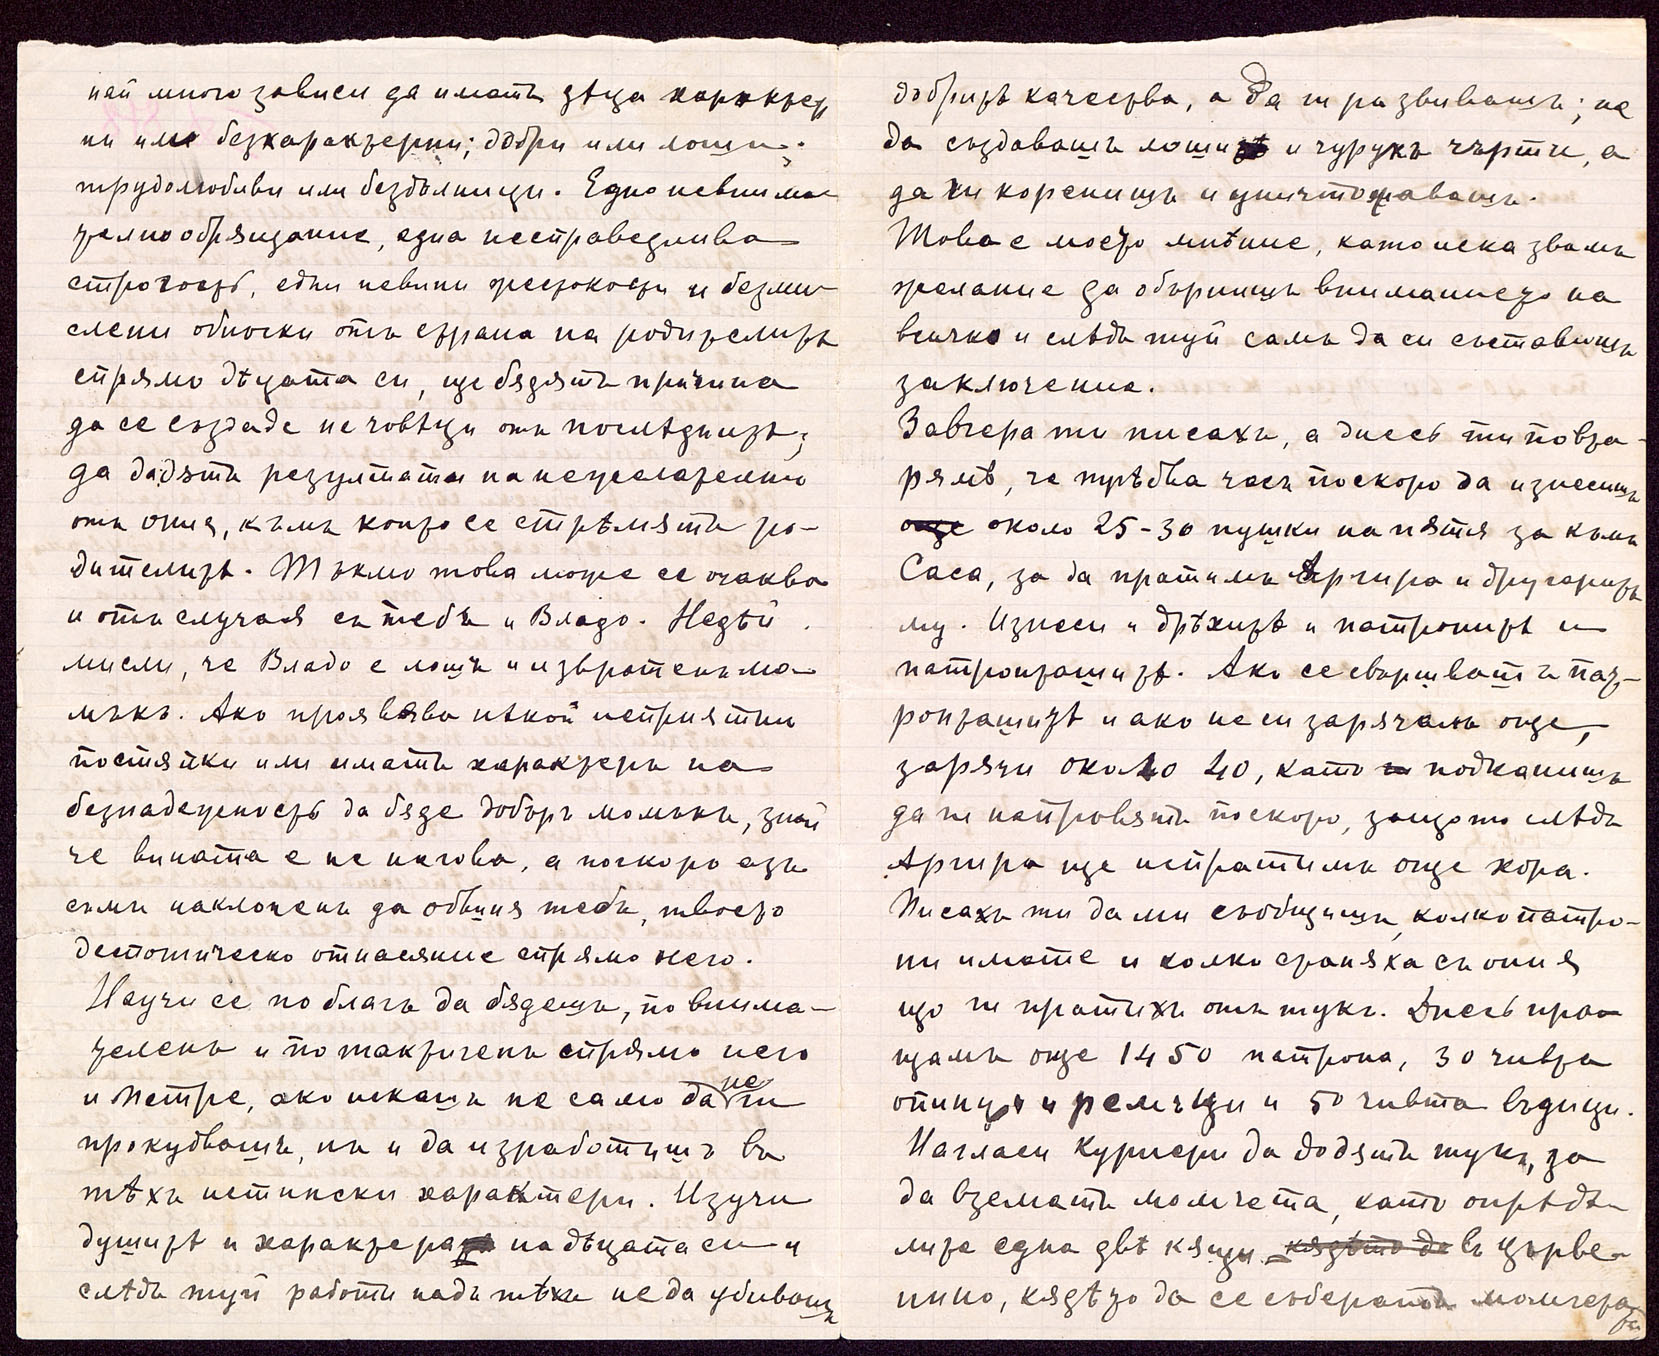 най много зависи да иматъ дѣца характер
ни или безхарактерни; добри или лоши;
трудолюбиви или бездѣлници. Едно невнима
телно обръщание, една несправедлива
строгость, едни невини жестокости и безми
слени обноски отъ страна на родителитѣ
спрямо дѣцата си, ще бѫдѫтъ причина
да се създаде не човѣци отъ послѣднитѣ;
да дадѫтъ резултати на нежелателно
отъ ония, къмъ което се стрѣмѭтъ ро-
дителитѣ. Тъкмо това може се очаква
и отъ случая съ тебъ и Владо. Недѣй
мисли, че Владо е лошъ и извратенъ мо
мъкъ. Ако проявява нѣкой неприятни
постѫпки или иматъ характеръ на
безнадежность да бѫде добъръ момъкъ, знай
че вината е не негова, а поскоро азъ
съмъ наклоненъ да обвиня тебъ, твоето
деспотическо отнасяние спрямо него.
Научи се по благъ да бѫдешъ, по внима-
теленъ и по тактиченъ спрямо него
и Петре, ако искашъ не само да не ги
прокудвашъ, нъ и да изработишъ въ
тѣхъ истински характери. Изучи
душитѣ и характера на дѣцата си и
слѣдъ туй работи надъ тѣхъ не да убивашъ
добритѣ качества, а да ги развивашъ; не
да създавашъ лоши и чурукъ чърти, а
да ги коренишъ и уничтожавашъ.
Това е моето мнѣние, като исказвамъ
желание да обърнишъ вниманието на
всичко и слѣдъ туй самъ да си съставишъ
заключение.
Завчера ти писахъ, а днесъ ти повта-
рямъ, че трѣбва часъ поскоро да изнесишъ
още около 25-30 пушки на пѫтя за къмъ
Саса, за да пратимъ Аргира и другаритѣ
му. Изнеси и дрѣхитѣ и патронитѣ и
патронташитѣ. Ако се свършватъ пат-
ронташитѣ и ако не си зарячалъ още,
зарячи около 40, като подканишъ
да ги направѭтъ поскоро, защото слѣдъ
Аргира ще испратимъ още хора.
Писахъ ти да ми съобщишъ, колко патро-
ни имате и колко станѫха съ ония
що ги пратихъ отъ тукъ. Днесъ пра
щамъ още 1450 патрона, 30 чивта
опинци и ремъци и 50 чивта въдици.
Нагласи куриери да додѫтъ тукъ, за
да вземать момчета, като опрѣдѣ
лите една двѣ кѫщи кѫдѣто да въ Църве-
нино, кѫдѣто да се събератъ момчета
та